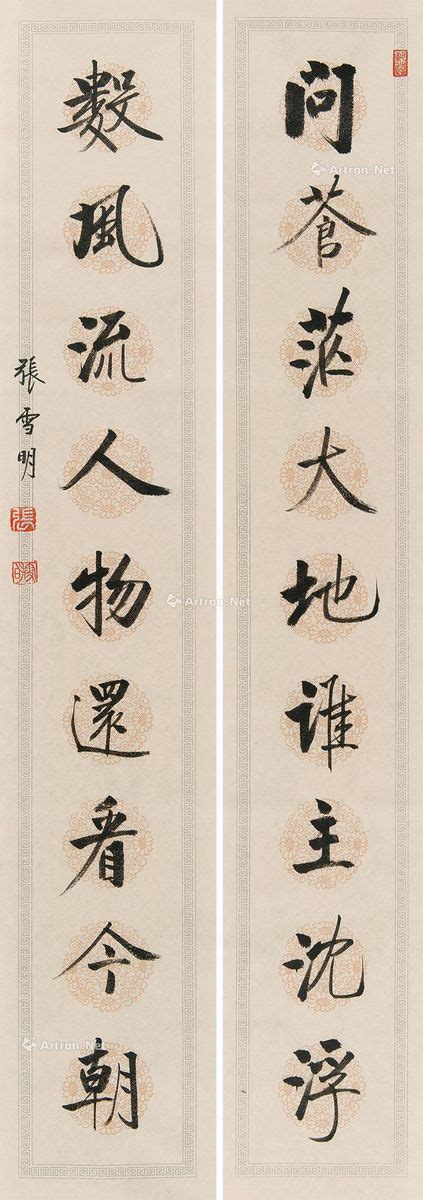 问苍茫大地谁主沈浮
數風流人物還看今朝
張雪明
張
Artron.Net
Artron.Net
Artron.Net